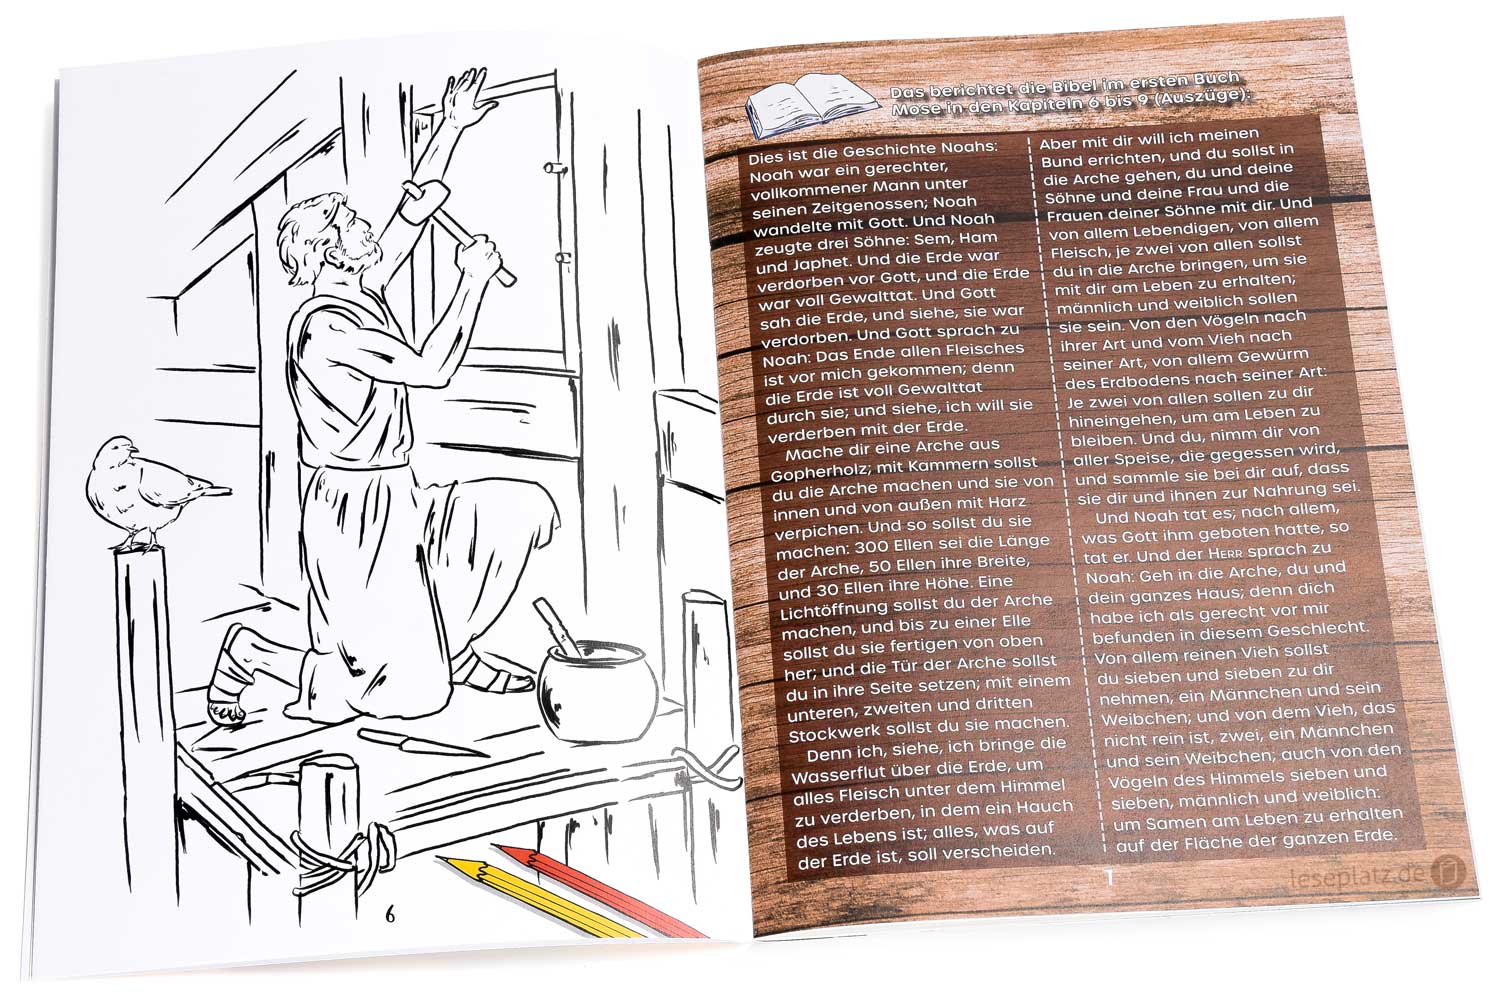 6
Das berichtet die Bibel im ersten Buch
Mose in den Kapiteln 6 bis 9 (Auszüge):
Dies ist die Geschichte Noahs:
Noah war ein gerechter,
vollkommener Mann unter
seinen Zeitgenossen; Noah
wandelte mit Gott. Und Noah
zeugte drei Söhne: Sem, Ham
und Japhet. Und die Erde war
verdorben vor Gott, und die Erde
war voll Gewalttat. Und Gott
sah die Erde, und siehe, sie war
verdorben. Und Gott sprach zu
Noah: Das Ende allen Fleisches
ist vor mich gekommen; denn
die Erde ist voll Gewalttat
durch sie; und siehe, ich will sie
verderben mit der Erde.
Mache dir eine Arche aus
Gopherholz; mit Kammern sollst
du die Arche machen und sie von
innen und von außen mit Harz
verpichen. Und so sollst du sie
machen: 300 Ellen sei die Länge
der Arche, 50 Ellen ihre Breite,
und 30 Ellen ihre Höhe. Eine
Lichtöffnung sollst du der Arche
machen, und bis zu einer Elle
sollst du sie fertigen von oben
her; und die Tür der Arche sollst
du in ihre Seite setzen; mit einem
unteren, zweiten und dritten
Stockwerk sollst du sie machen.
Denn ich, siehe, ich bringe die
Wasserflut über die Erde, um
alles Fleisch unter dem Himmel
zu verderben, in dem ein Hauch
des Lebens ist; alles, was auf
der Erde ist, soll verscheiden.
Aber mit dir will ich meinen
Bund errichten, und du sollst in
die Arche gehen, du und deine
Söhne und deine Frau und die
Frauen deiner Söhne mit dir. Und
von allem Lebendigen, von allem
Fleisch, je zwei von allen sollst
du in die Arche bringen, um sie
mit dir am Leben zu erhalten;
männlich und weiblich sollen
sie sein. Von den Vögeln nach
ihrer Art und vom Vieh nach
seiner Art, von allem Gewürm
des Erdbodens nach seiner Art:
Je zwei von allen sollen zu dir
hineingehen, um am Leben zu
bleiben. Und du, nimm dir von
aller Speise, die gegessen wird,
und sammle sie bei dir auf, dass
sie dir und ihnen zur Nahrung sei.
Und Noah tat es; nach allem,
was Gott ihm geboten hatte, so
tat er. Und der HERR sprach zu
Noah: Geh in die Arche, du und
dein ganzes Haus; denn dich
habe ich als gerecht vor mir
befunden in diesem Geschlecht.
Von allem reinen Vieh sollst
du sieben und sieben zu dir
nehmen, ein Männchen und sein
Weibchen; und von dem Vieh, das
nicht rein ist, zwei, ein Männchen
und sein Weibchen; auch von den
Vögeln des Himmels sieben und
sieben, männlich und weiblich:
um Samen am Leben zu erhalten
auf der Fläche der ganzen Erde.
1
leseplatz.de